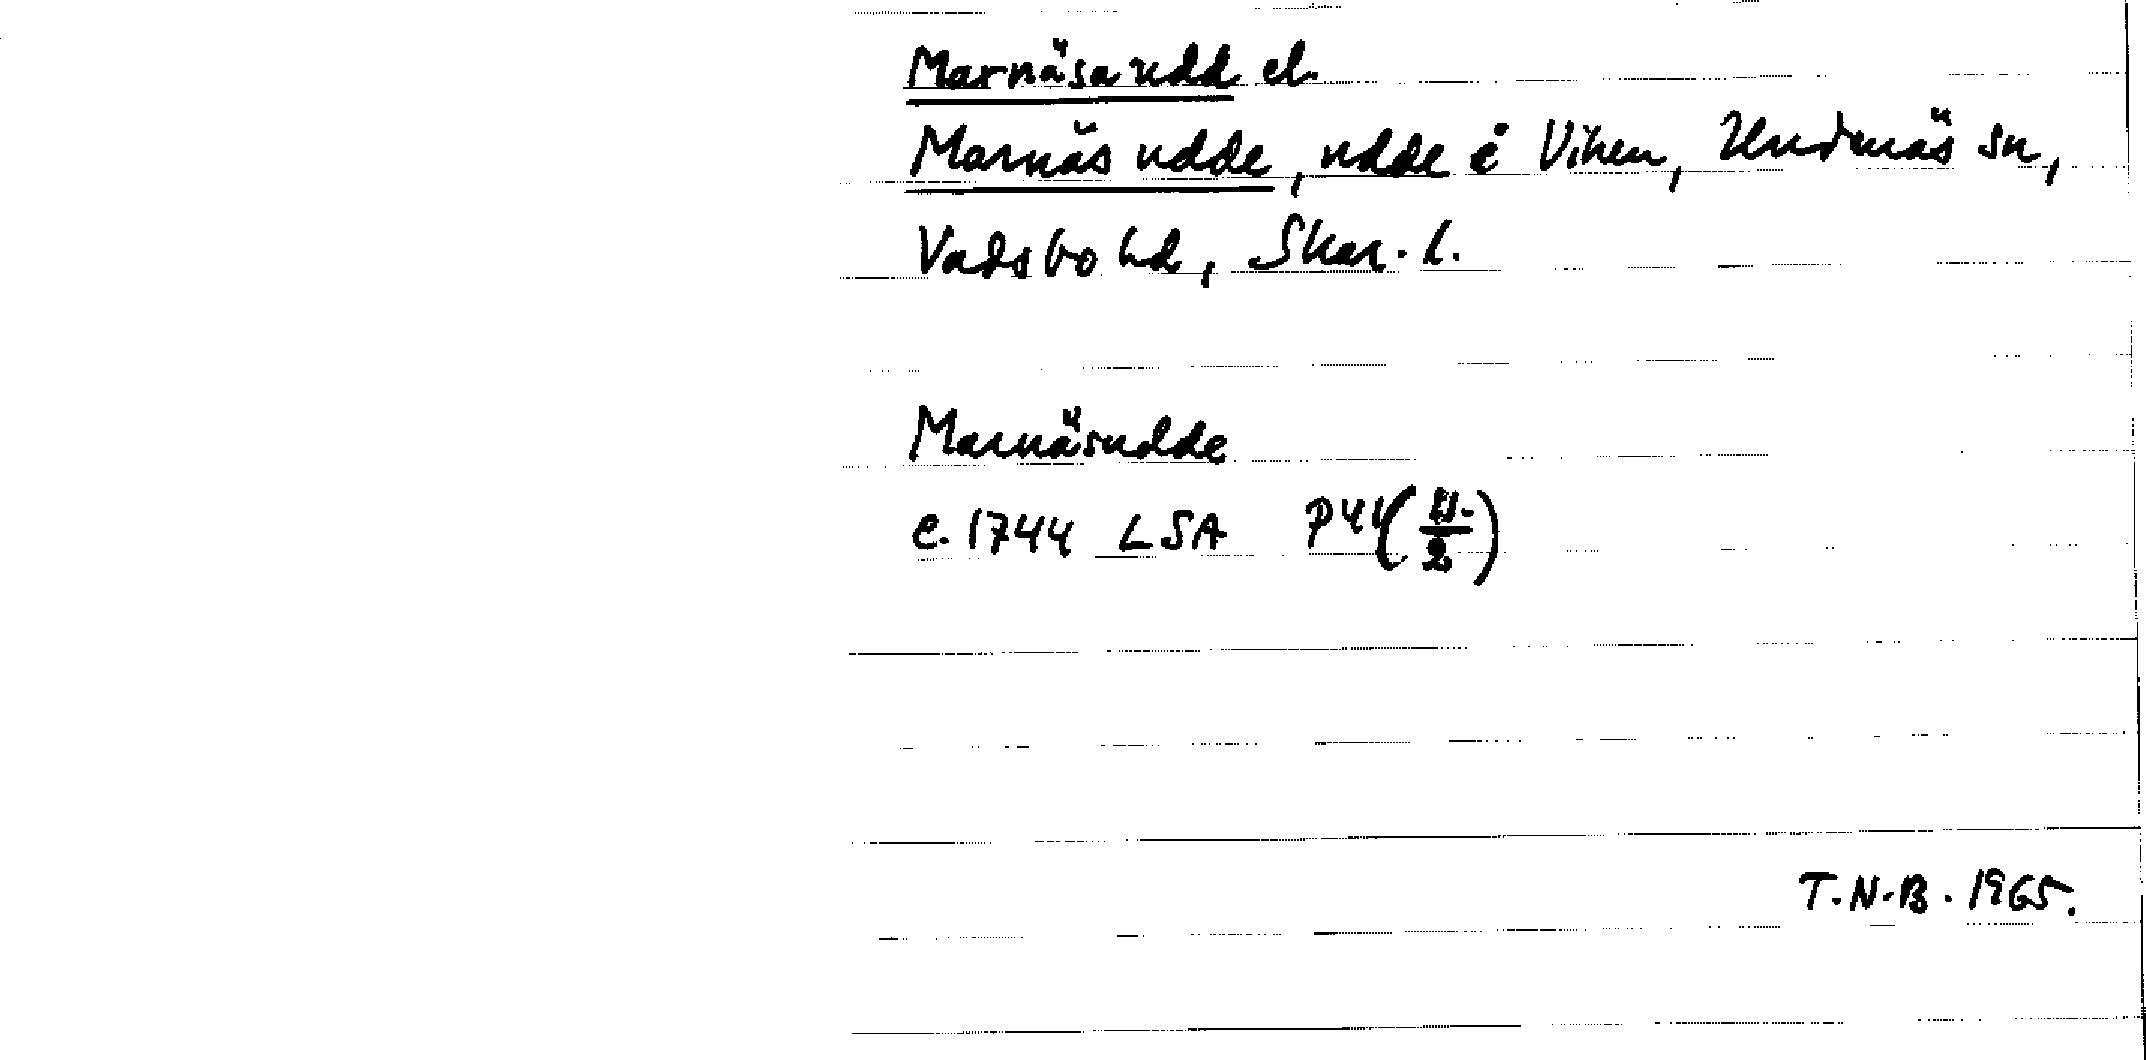 Marnäsa udd el.
Marnäs udde, udde i Viken, Undenäs sn,
Vadsbo hd, Skar. l.
Marnäsudde
c. 1744 LSA P44 (11/2)
T.N-B. 1965.